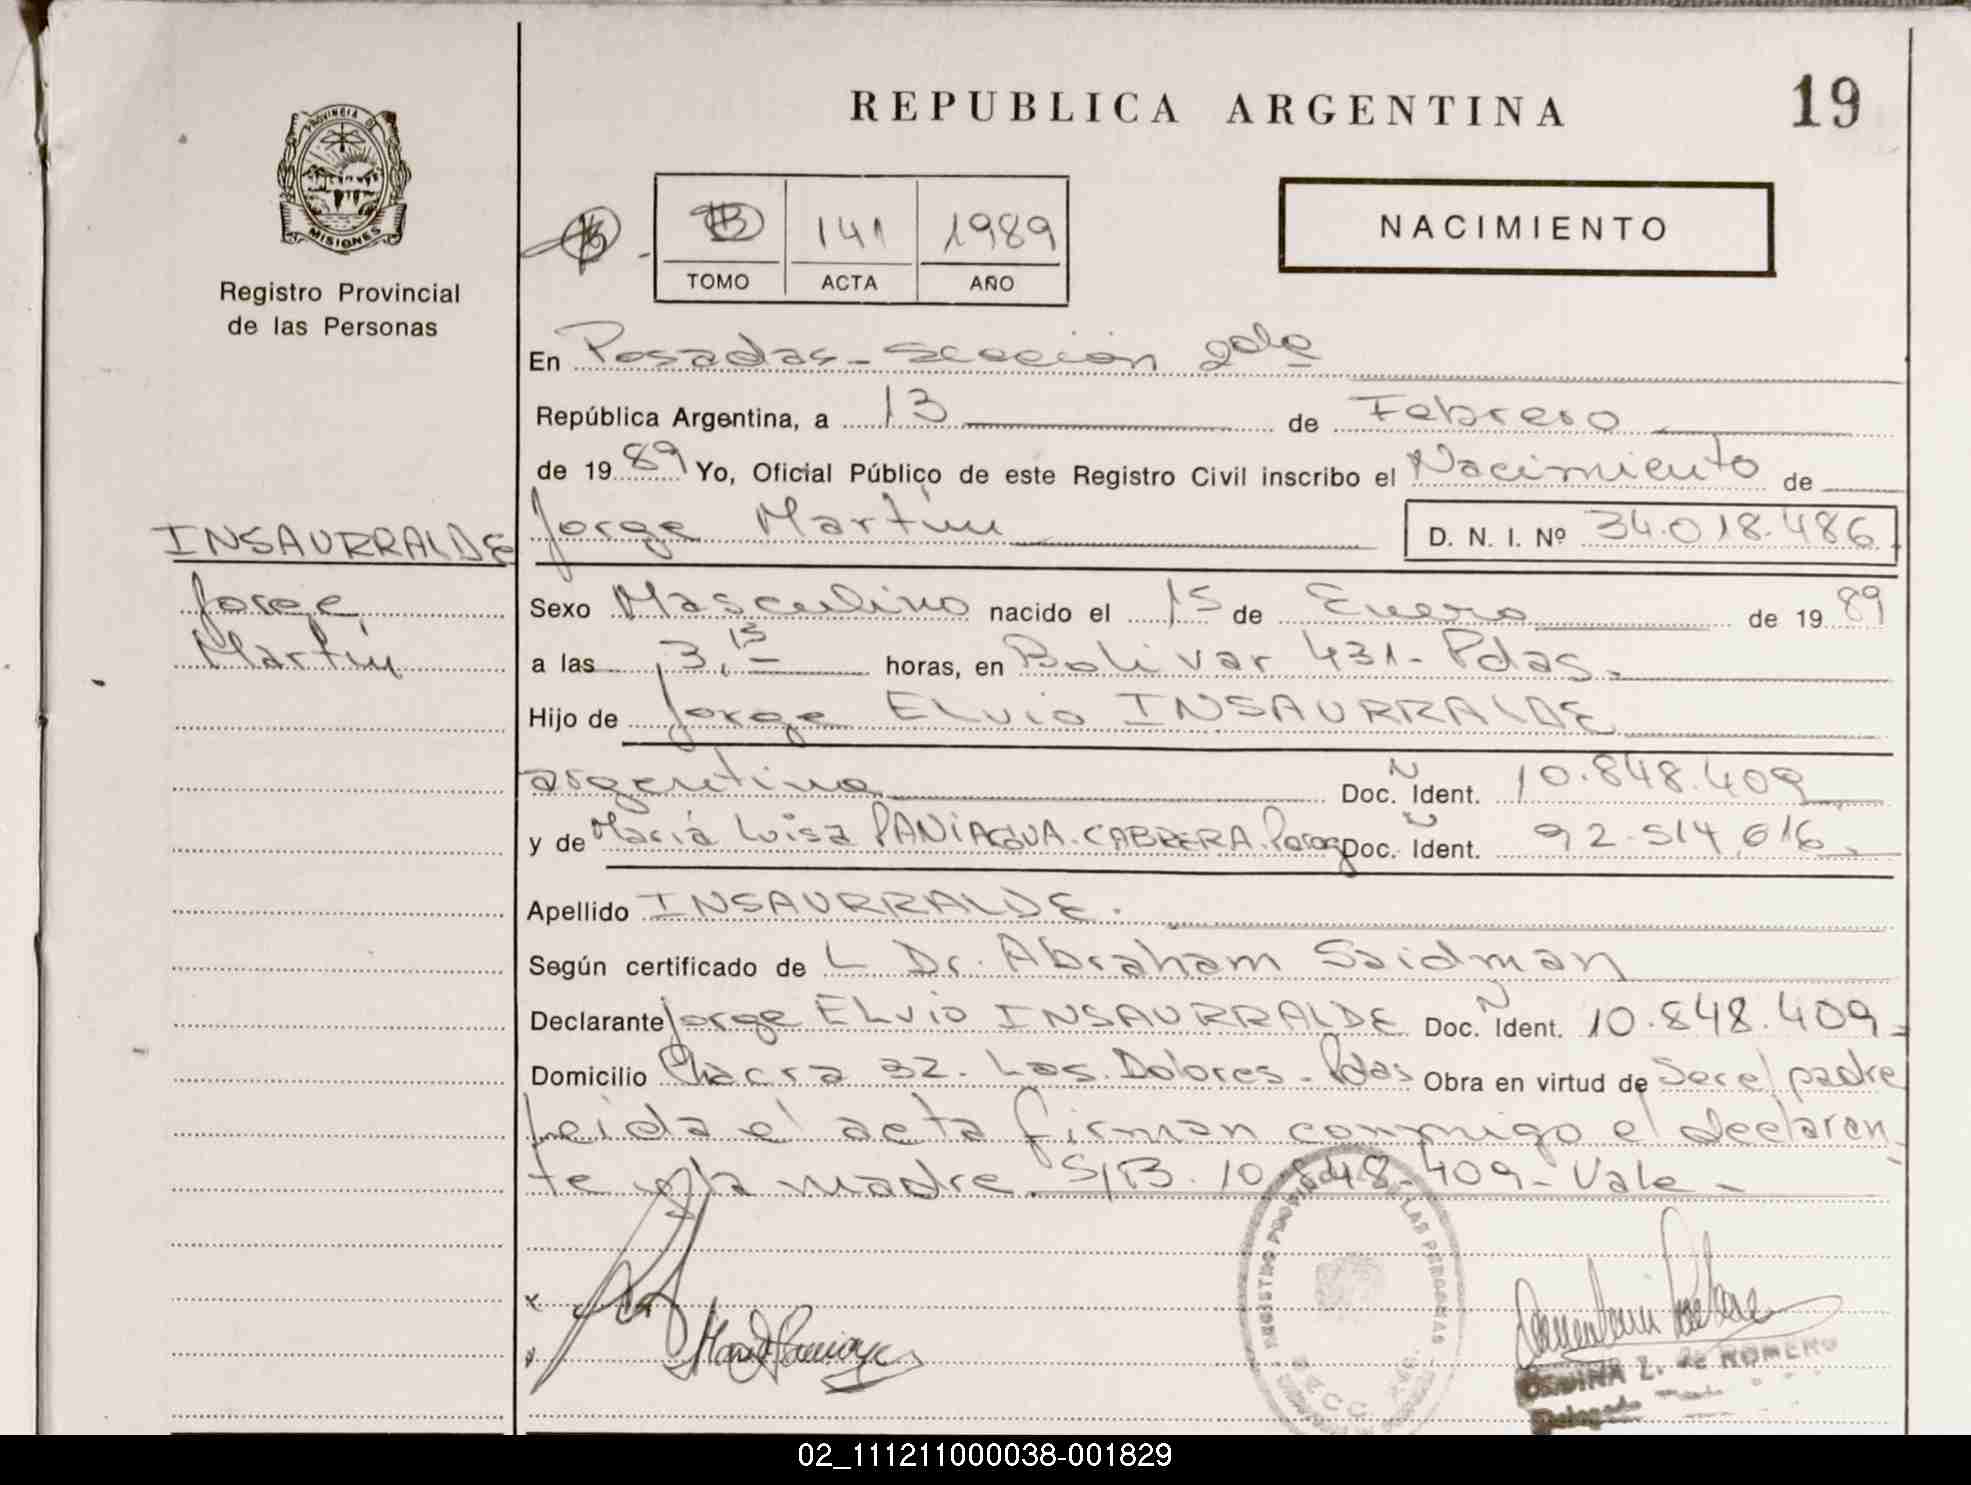 REPUBLICA ARGENTINA
19
PROVINCIA DE
MISIONES
Registro Provincial
de las Personas
141 1989
TOMO ACTA AÑO
NACIMIENTO
En Posadas - Sección 2da
República Argentina, a 13 de Febrero
de 1989 Yo, Oficial Público de este Registro Civil inscribo el Nacimiento de
INSAURRALDE
Jorge
Martín
Jorge Martín D. N. I. Nº 34.018.486
Sexo Masculino nacido el 15 de Enero de 1989
a las 3,15 horas, en Bolivar 431 - Pdas.
Hijo de Jorge ELvio INSAURRALDE
argentino Doc. N Ident. 10.848.409
y de María Luisa PANIAGUA CABRERA. Parag Doc. N Ident. 92.514.616
Apellido INSAURRALDE.
Según certificado de L Dr. Abraham Saidman
Declarante Jorge ELvio INSAURRALDE Doc. N Ident. 10.848.409-
Domicilio Chacra 32. Los Dolores - Pdas Obra en virtud de Ser el padre
Leida el acta firman conmigo el declaran-
te y la madre. S/B. 10.848.409 - Vale -
REGISTRO PROVINCIAL DE LAS PERSONAS
Z. de ROMERO
Delegado
02_111211000038-001829